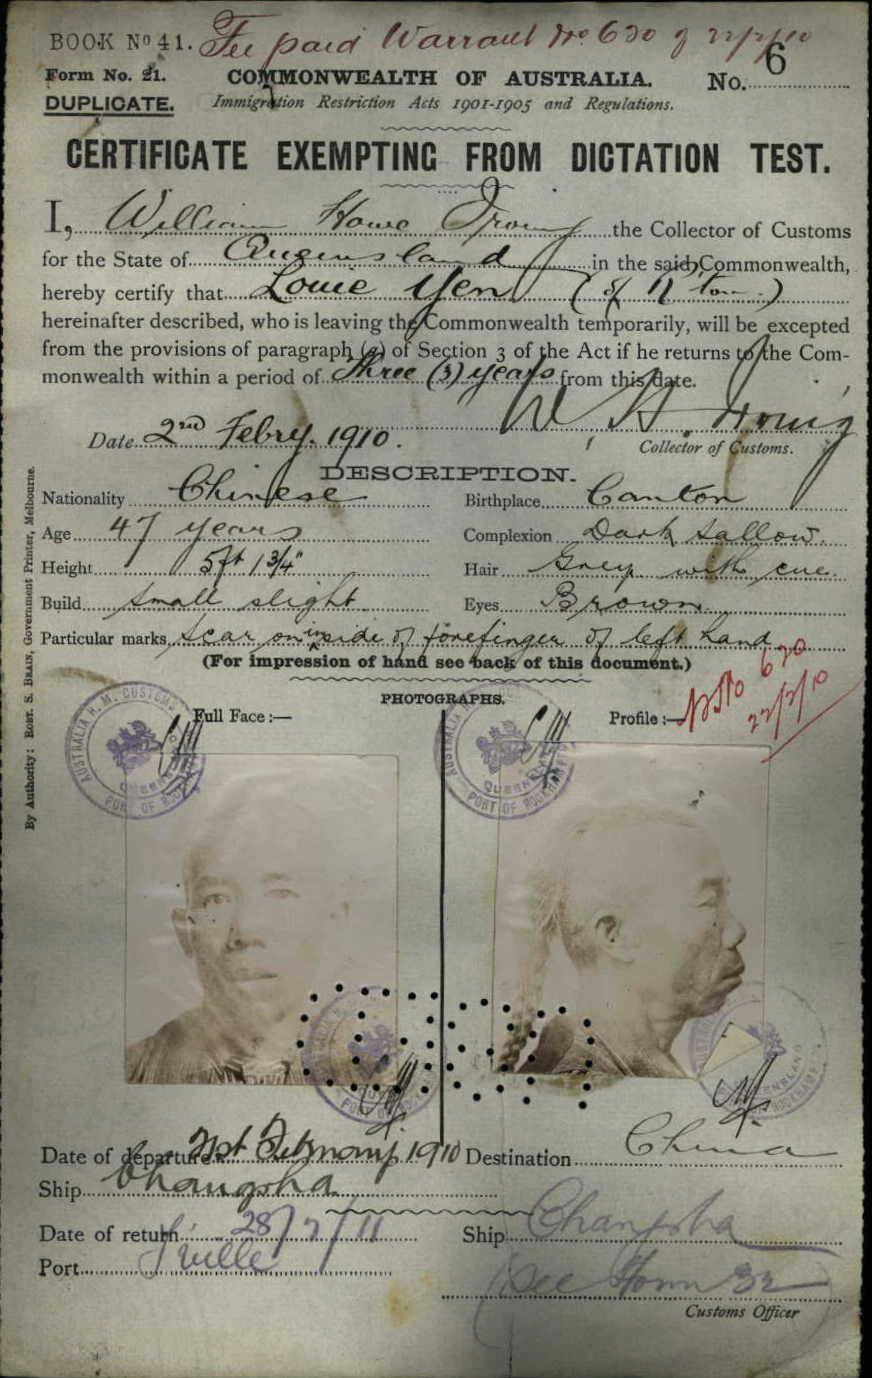 BOOK No 41. Fee paid Warrant No 630 of 22/2/10
Form No. 21. COMMONWEALTH OF AUSTRALIA. No. 6
DUPLICATE. Immigration Restriction Acts 1901-1905 and Regulations.
CERTIFICATE EXEMPTING FROM DICTATION TEST.
I, William Howe Irving the Collector of Customs
for the State of Queensland in the said Commonwealth,
hereby certify that Louie Yen (of R'ton)
hereinafter described, who is leaving the Commonwealth temporarily, will be excepted
from the provisions of paragraph (a) of Section 3 of the Act if he returns to the Com-
monwealth within a period of Three (3) years from this date.
W. H. Irving
Date 2nd Febry. 1910. Collector of Customs.
DESCRIPTION.
Nationality Chinese Birthplace Canton
Age 47 years Complexion Dark sallow.
Height 5ft 1 3/4" Hair Grey with cue.
Build Small slight Eyes Brown.
Particular marks Scar on inside of forefinger of left hand
(For impression of hand see back of this document.)
PHOTOGRAPHS.
Full Face:— Profile:— 630
22/2/10
AUSTRALIA H. M. CUSTOMS QUEENSLAND PORT OF ROCKHAMPTON
AUSTRALIA QUEENSLAND PORT OF ROCKHAMPTON
QUEENSLAND ROCKHAMPTON
Date of departure 21st February 1910 Destination China
Ship Changsha
Date of return 28/7/11 Ship Changsha
Port T'ville See Form 32
Customs Officer
By Authority: ROBT. S. BRAIN, Government Printer, Melbourne.